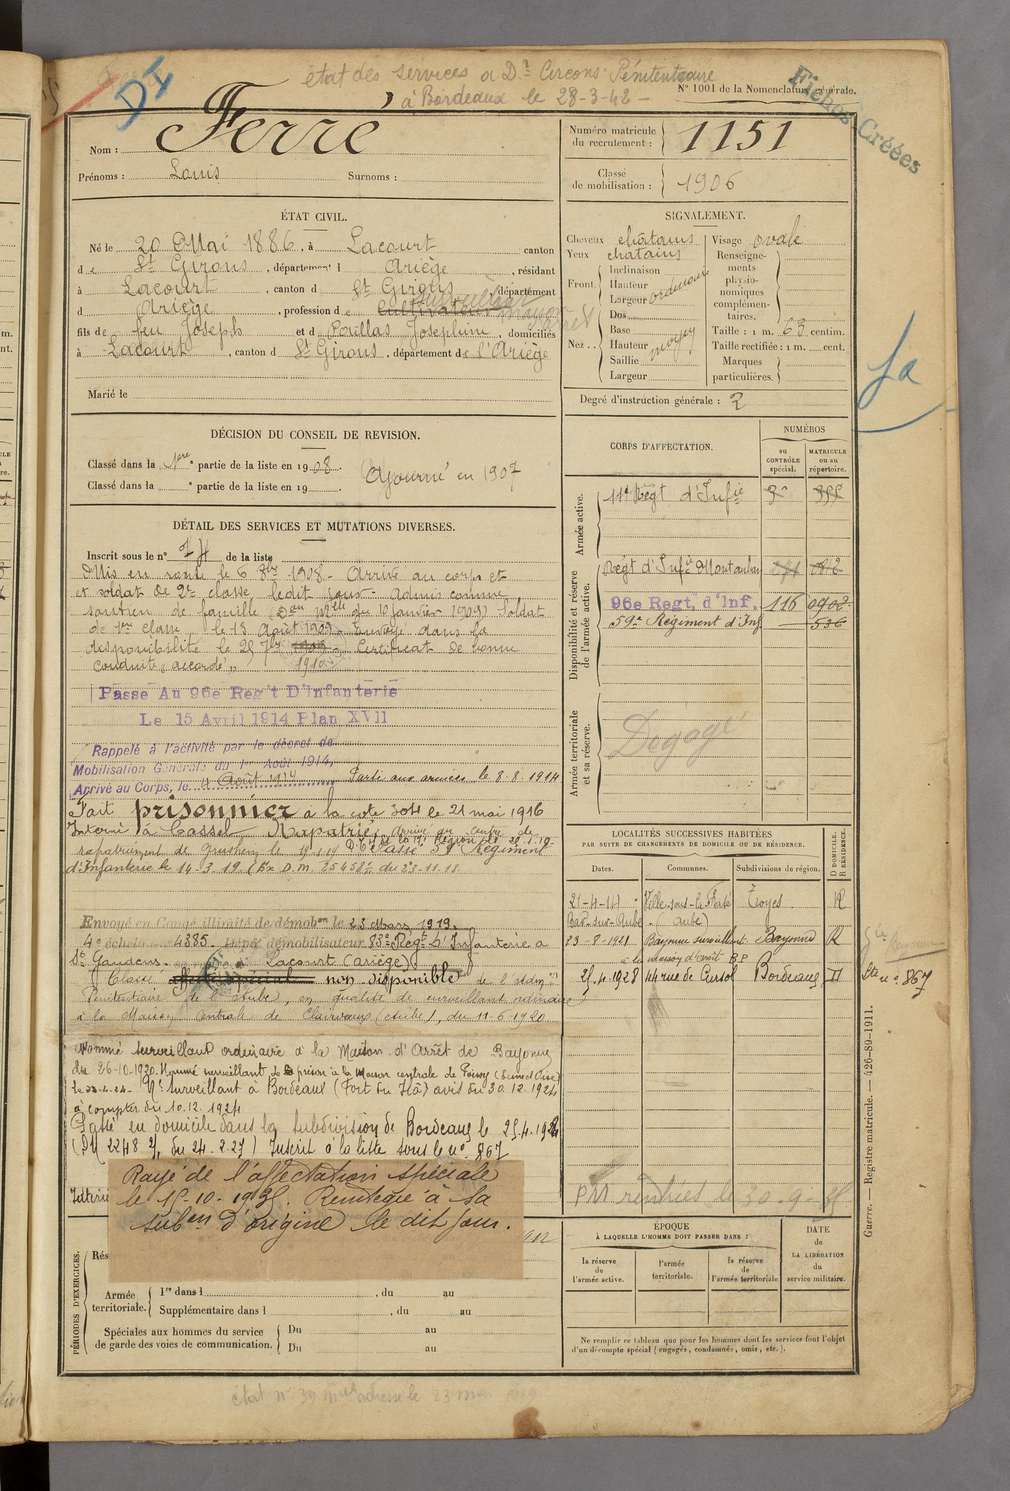 DI
état des services a Dn Circons Pénitentiaire
à Bordeaux le 28-3-42 -
N° 1001 de la Nomenclature générale.
Fiches Créées
Nom : Ferré
Prénoms : Louis Surnoms :
Numéro matricule du recrutement : 1151
Classe de mobilisation : 1906
ÉTAT CIVIL.
Né le 20 Mai 1886, à Lacourt canton
de St Girons, département d Ariège, résidant
à Lacourt, canton d St Girons, département
d Ariège, profession de cultivateur surveillant maison
fils de feu Joseph et d Pouillas Josephine, domiciliés
à Lacourt, canton d St Girons, département de l'Ariège
Marié le
SIGNALEMENT.
Cheveux châtains
Yeux châtains
Front. Inclinaison
Hauteur
Largeur ordinaire
Nez. Dos
Base
Hauteur moyen
Saillie
Largeur
Visage ovale
Renseignements physionomiques complémentaires.
Taille : 1 m. 63 centim.
Taille rectifiée : 1 m. cent.
Marques particulières.
Degré d'instruction générale : 2
fa
DÉCISION DU CONSEIL DE REVISION.
Classé dans la 1ère partie de la liste en 1908.
Classé dans la e partie de la liste en 19
Ajourné en 1907
DÉTAIL DES SERVICES ET MUTATIONS DIVERSES.
Inscrit sous le n° 24 de la liste
Mis en route le 6 8bre 1908. Arrivé au corps et
et soldat de 2e classe ledit jour. Admis comme
soutien de famille (Don Mlle du 10 janvier 1909) Soldat
de 1re classe le 13 Août 1909. Envoyé dans la
disponibilité le 25 7bre 1909 1910. Certificat de bonne
conduite "accordé"
Passé Au 96e Reg't D'Infanterie
Le 15 Avril 1914 Plan XVII
Rappelé à l'activité par le décret de
Mobilisation Générale du 1er Août 1914,
Arrivé au Corps, le 4 Août 1914 Parti aux armées le 8.8.1914
Fait prisonnier à la cote 304 le 21 mai 1916
Interné à Cassel Rapatrié, arrivé au centre de
rapatriement de Gruchery le 19-1-19 Passé 59e Régiment
d'Infanterie le 14.3.19 (Ex D.M. 25458 du 23.11.18
Envoyé en Congé illimité de démobon le 23 Mars 1919.
4e échelon n° 4335. Dépôt démobilisateur 83e Regt d'Infanterie a
St Gaudens. Lacourt (Ariège)
Classé affecté spécial non disponible de l'Admon
Pénitentiaire de l'Aube, en qualité de surveillant ordinaire
à la Maison Centrale de Clairvaux (Aube), du 11-6-1920
Nommé surveillant ordinaire à la Maison d'Arrêt de Bayonne
du 26-10-1920. Nommé surveillant de prison à la Maison centrale de Poissy (Seine et Oise)
Né surveillant à Bordeaux (Fort du Hâ) avis du 30.12.1924
à compter du 10.12.1924
Passé en domicile dans la subdivision de Bordeaux le 25.4.1928
(DM 2248 2/ du 24.2.27) Inscrit à la liste sous le n° 867
Rayé de l'affectation spéciale
le 15-10-1935. Reintégré à sa
subon d'origine le dit jour.
CORPS D'AFFECTATION.
NUMÉROS
au CONTRÔLE spécial.
MATRICULE ou au répertoire.
Armée active.
11e Régt d'Infie
Disponibilité et réserve de l'armée active.
Régt d'Infie Montauban
96e Regt. d'Inf. 116 0902
59e Régiment d'Inf 536
Armée territoriale et sa réserve.
Dégagé
LOCALITÉS SUCCESSIVES HABITÉES
PAR SUITE DE CHANGEMENTS DE DOMICILE OU DE RÉSIDENCE.
Dates. Communes. Subdivisions de région. D DOMICILE. R RÉSIDENCE.
21-4-14 Ville-sous-la-Ferté Troyes R
Bar-sur-Aube (Aube)
23-8-1921 Bayonne surveillant Bayonne R
à la maison d'arrêt B.P
25.4.1928 44 rue de Cursol Bordeaux D
Bayonne
Liste n° 867
PM rendues le 30-9-35
PÉRIODES D'EXERCICES.
Rés
1912
Armée territoriale. 1re dans l , du au
Supplémentaire dans l , du au
Spéciales aux hommes du service de garde des voies de communication. Du au
Du au
ÉPOQUE
À LAQUELLE L'HOMME DOIT PASSER DANS :
la réserve de l'armée active.
l'armée territoriale.
la réserve de l'armée territoriale
DATE de LA LIBÉRATION du service militaire.
Ne remplir ce tableau que pour les hommes dont les services font l'objet
d'un décompte spécial (engagés, condamnés, omis, etc.).
Guerre. — Registre matricule. — 426-89-1911.
état n° 39 adressé le 23